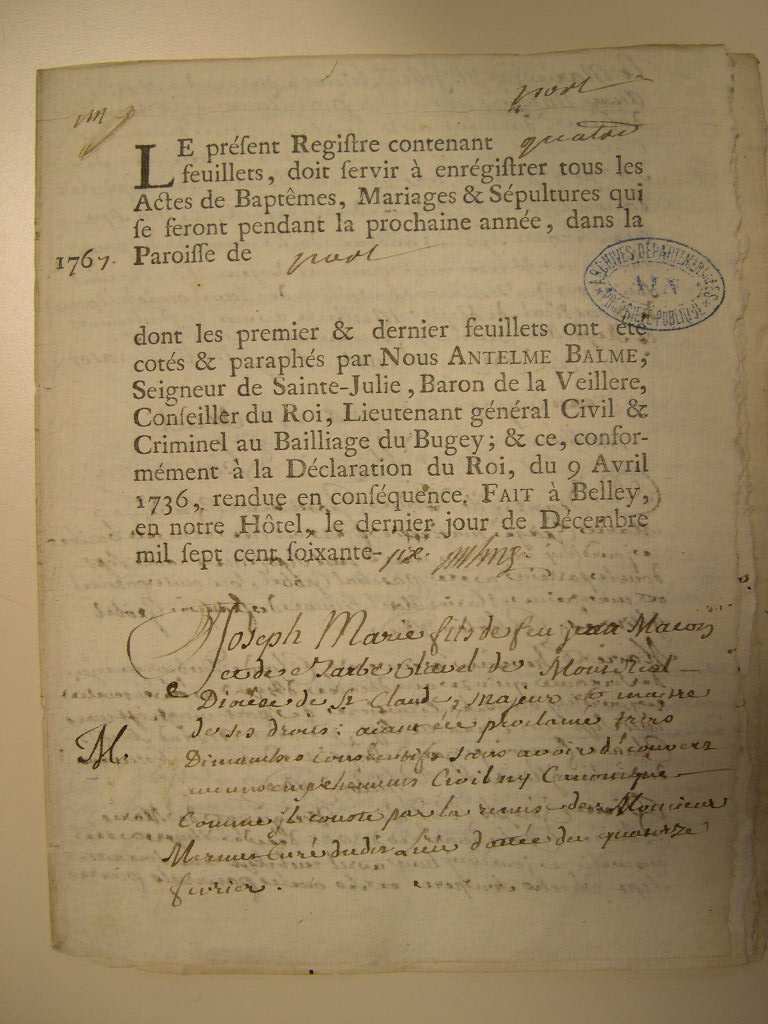 port
LE préſent Regiſtre contenant quatre
feuillets, doit ſervir à enrégiſtrer tous les
Actes de Baptêmes, Mariages & Sépultures qui
ſe feront pendant la prochaine année, dans la
1767. Paroiſſe de port
ARCHIVES DÉPARTEMENTALES
AIN
dont les premier & dernier feuillets ont été
cotés & paraphés par Nous ANTELME BALME,
Seigneur de Sainte-Julie, Baron de la Veillere,
Conſeiller du Roi, Lieutenant général Civil &
Criminel au Bailliage du Bugey; & ce, confor-
mément à la Déclaration du Roi, du 9 Avril
1736, rendue en conſéquence. FAIT à Belley,
en notre Hôtel, le dernier jour de Décembre
mil ſept cent ſoixante-six.
Joseph Marie fils de feu jean Macon
et de Clavel de Montreal
Diocese de St Claude, majeur et maitre
M. de ses droits: aiant été proclamé trois
Dimanches consecutifs sans avoir découvert
aucuns empechemens Civil ny Canonique
comme il conste par la remise de Monsieur
Curé dudit lieu dattée du quatorze
fevrier.